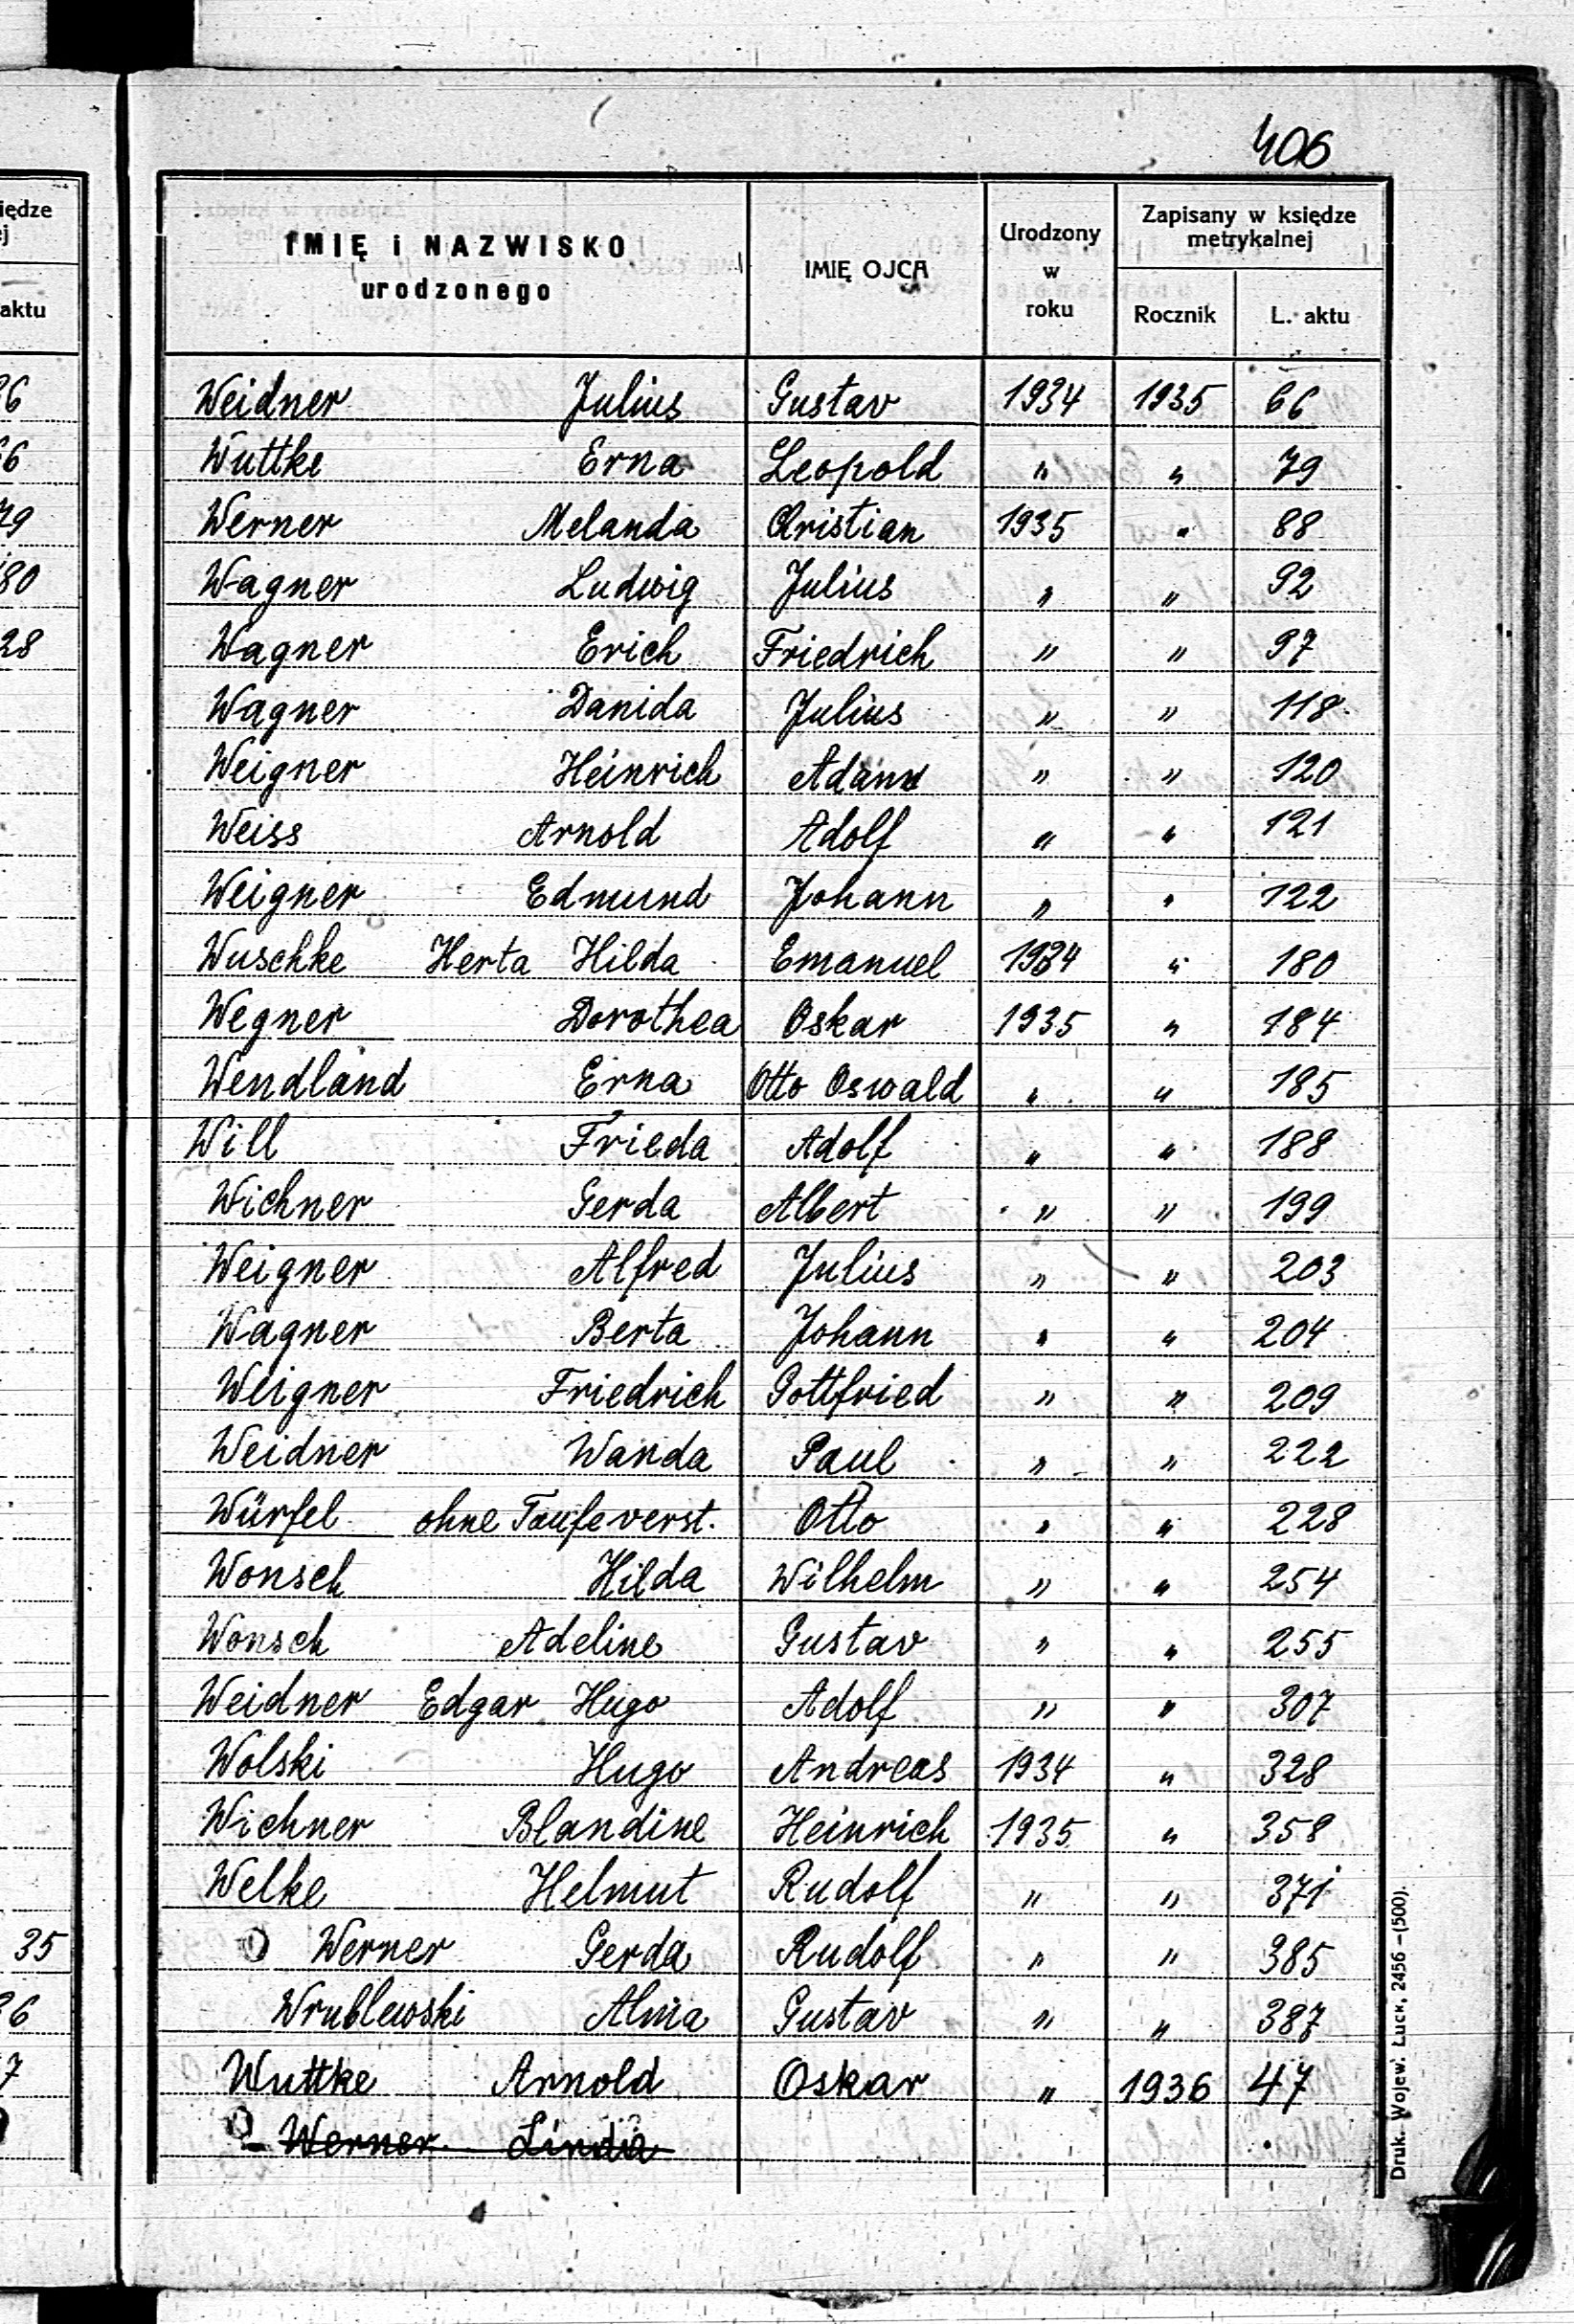 406
iędze
ej
aktu
36
66
79
80
28
35
36
7
IMIĘ i NAZWISKO
urodzonego
IMIĘ OJCA
Urodzony
w
roku
Zapisany w księdze
metrykalnej
Rocznik
L. aktu
Weidner Julius Gustav 1934 1935 66
Wuttke Erna Leopold " " 79
Werner Melanda Christian 1935 " 88
Wagner Ludwig Julius " " 92
Wagner Erich Friedrich " " 97
Wagner Danida Julius " " 118
Weigner Heinrich Adam " " 120
Weiss Arnold Adolf " " 121
Weigner Edmund Johann " " 122
Wuschke Herta Hilda Emanuel 1934 " 180
Wegner Dorothea Oskar 1935 " 184
Wendland Erna Otto Oswald " " 185
Will Frieda Adolf " " 188
Wichner Gerda Albert " " 199
Weigner Alfred Julius " " 203
Wagner Berta Johann " " 204
Weigner Friedrich Gottfried " " 209
Weidner Wanda Paul " " 222
Würfel ohne Taufe verst. Otto " " 228
Wonsch Hilda Wilhelm " " 254
Wonsch Adeline Gustav " " 255
Weidner Edgar Hugo Adolf " " 307
Wolski Hugo Andreas 1934 " 328
Wichner Blandine Heinrich 1935 " 358
Welke Helmut Rudolf " " 371
Werner Gerda Rudolf " " 385
Wrublewski Alma Gustav " " 387
Wuttke Arnold Oskar " 1936 47
Werner Linda
Druk. Wojew. Łuck, 2456 –(500).